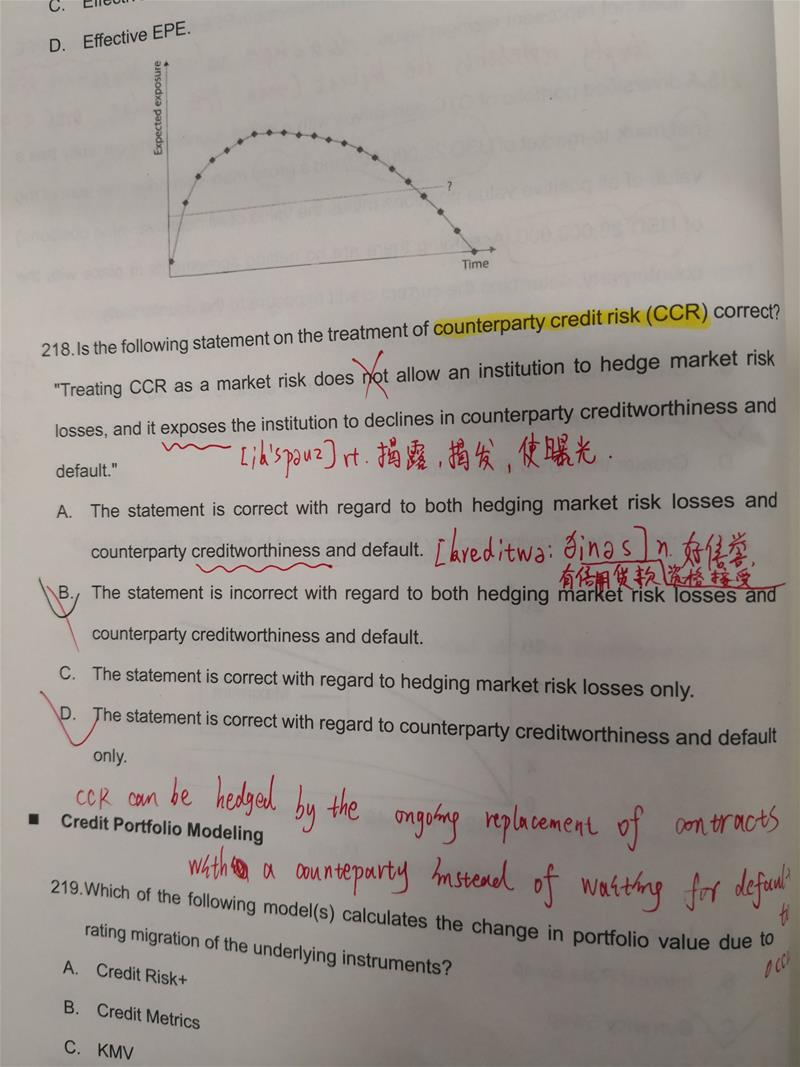 C.
D. Effective EPE.
Expected exposure
?
Time
218. Is the following statement on the treatment of counterparty credit risk (CCR) correct?
"Treating CCR as a market risk does not allow an institution to hedge market risk
losses, and it exposes the institution to declines in counterparty creditworthiness and
default."
vt. 揭露, 揭发, 使曝光.
A. The statement is correct with regard to both hedging market risk losses and
counterparty creditworthiness and default.
n. 好信誉,
有信用货款 资格接受
B. The statement is incorrect with regard to both hedging market risk losses and
counterparty creditworthiness and default.
C. The statement is correct with regard to hedging market risk losses only.
D. The statement is correct with regard to counterparty creditworthiness and default
only.
CCR can be hedged by the ongoing replacement of contracts
■ Credit Portfolio Modeling
with a counteparty instead of waiting for default
219. Which of the following model(s) calculates the change in portfolio value due to
rating migration of the underlying instruments?
A. Credit Risk+
B. Credit Metrics
C. KMV